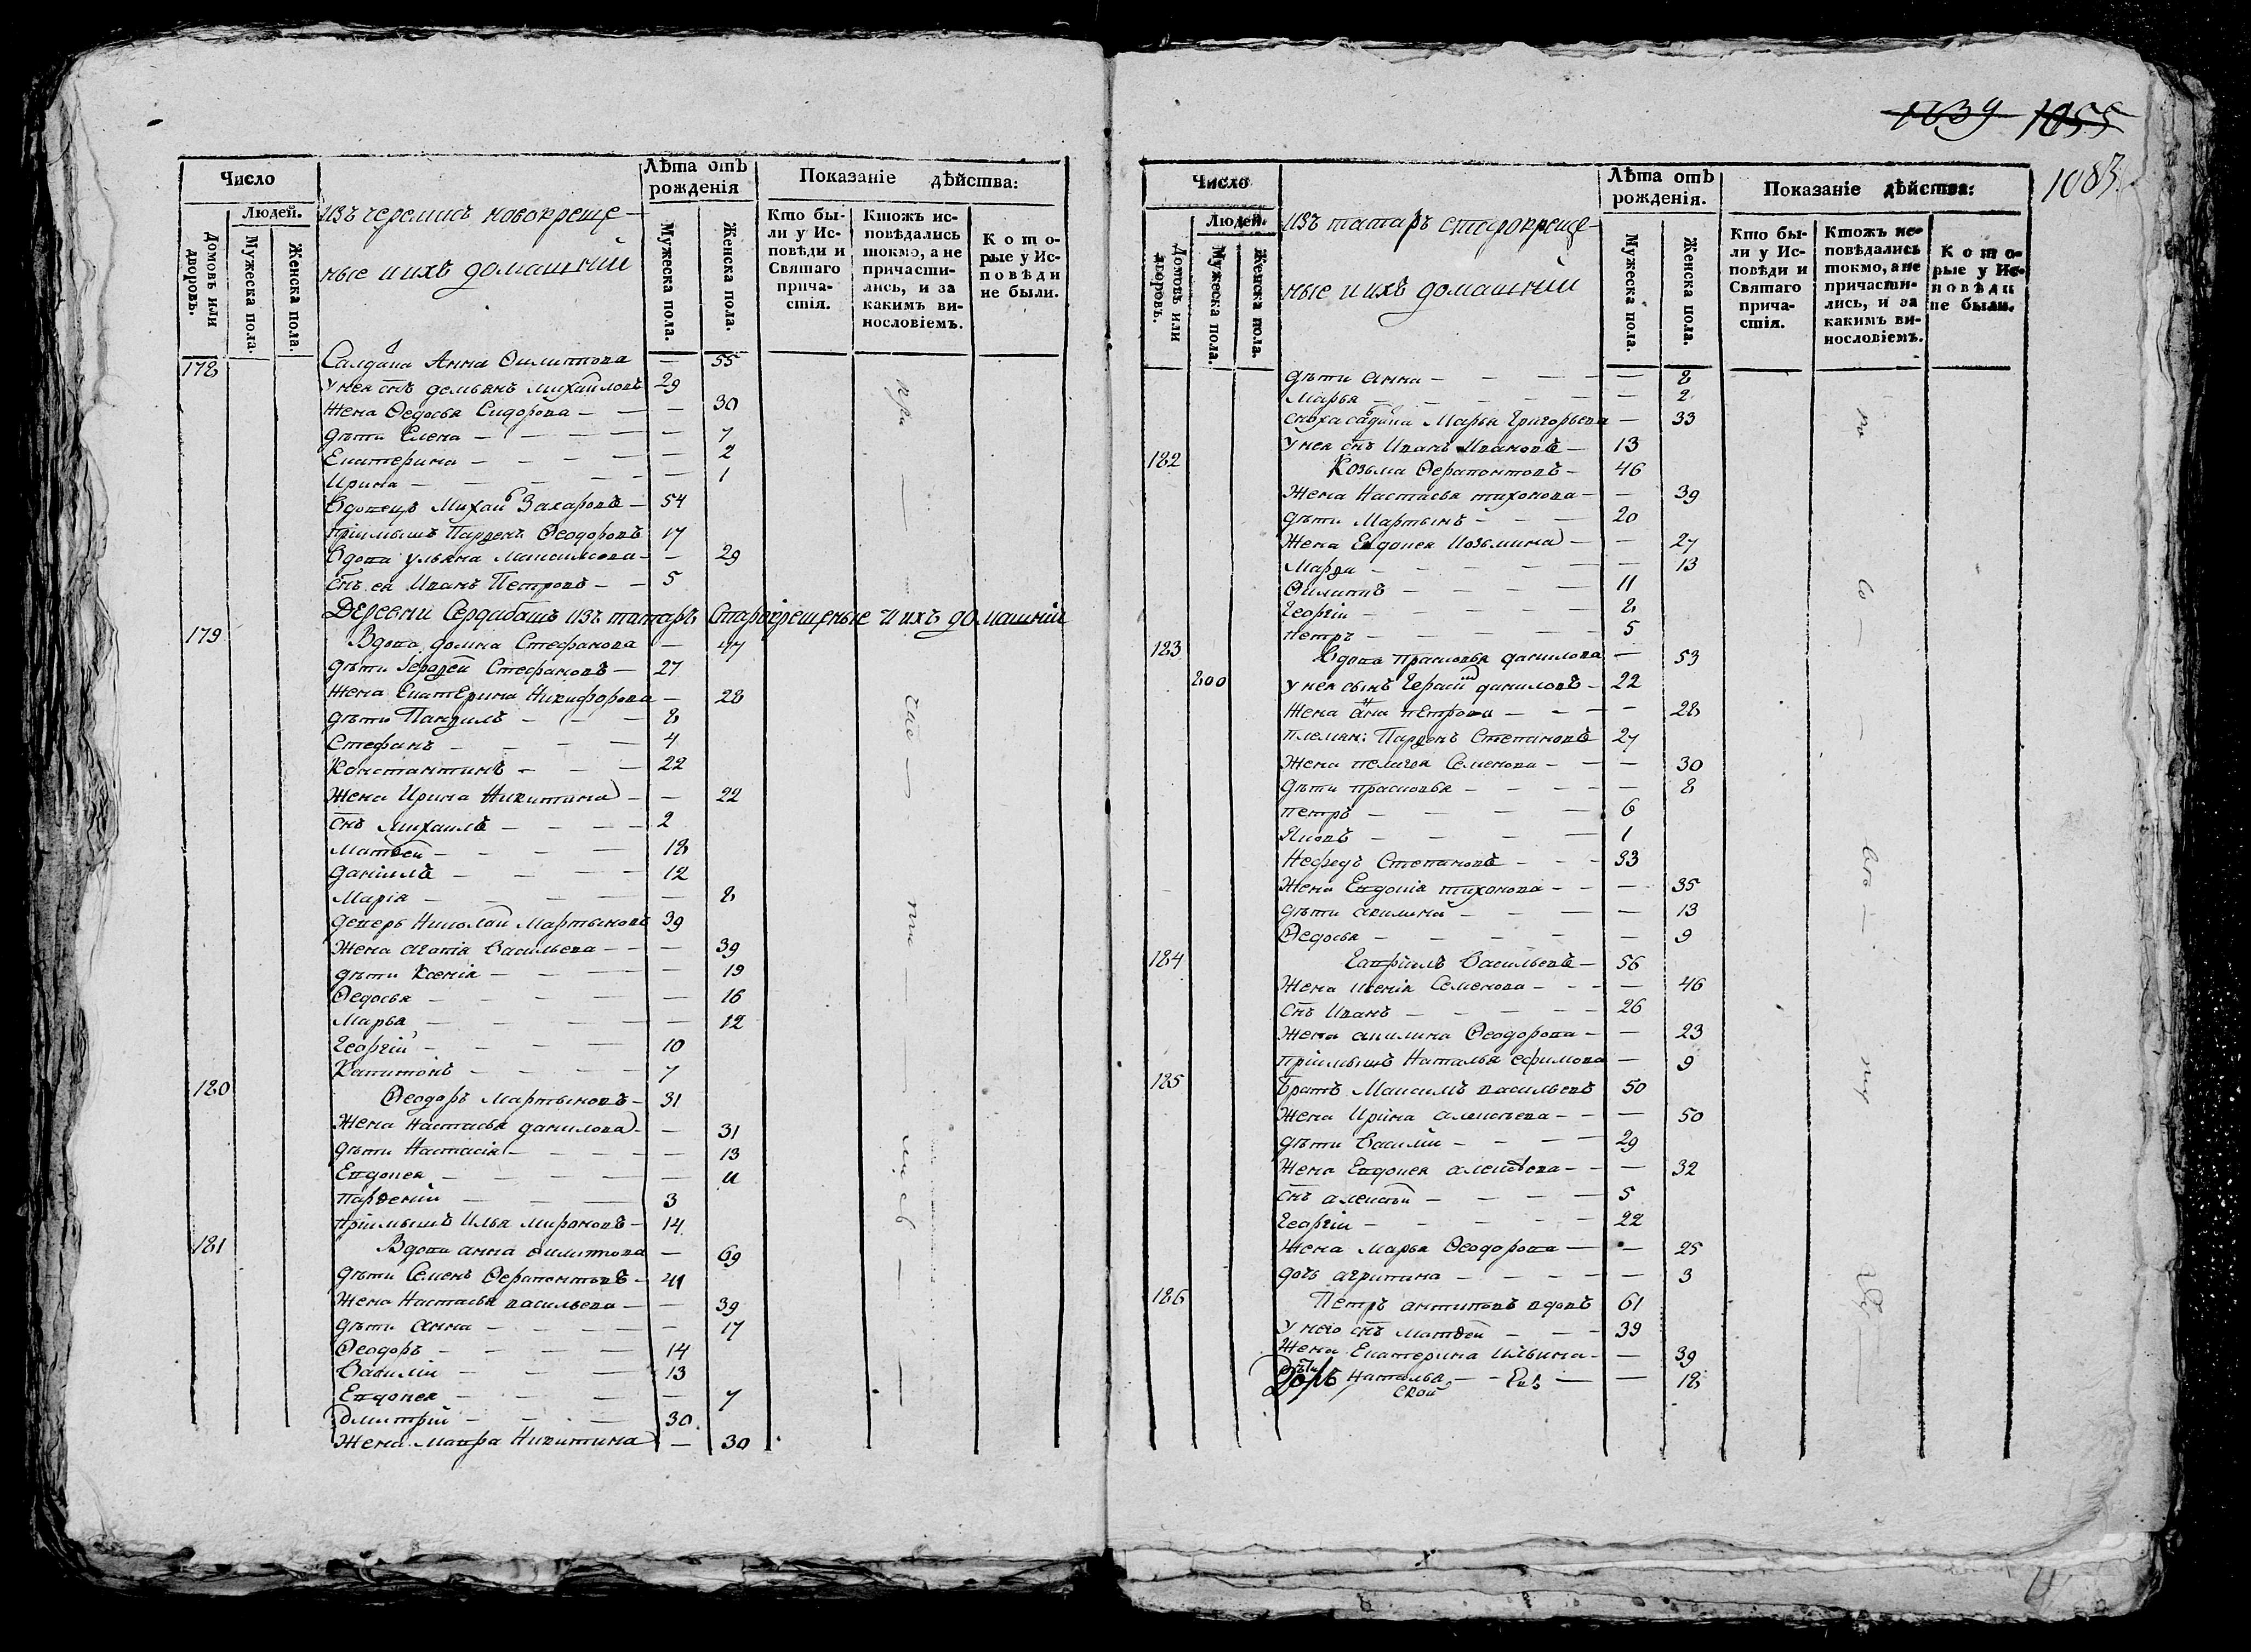 Число
Людей.
Домовъ или дворовъ.
Мужеска пола.
Женска пола.
изъ черемисъ новокреще-
ные и ихъ домашнїи
Лѣта отъ рожденія
Мужеска пола.
Женска пола.
Показаніе дѣйства:
Кто бы-
ли у Ис-
повѣди и
Святаго
прича-
стія.
Ктожъ ис-
повѣдались
токмо, а не
причасти-
лись, и за
какимъ ви-
нословіемъ.
Кото-
рые у Ис-
повѣди
не были.
178 Салдатка Анна Филипова — 55
У нея снъ демьянъ Михаиловъ 29
Жена Ѳедосья Сидорова — 30
дѣти Елена — 7
Екатерина — 2
Ирина — 1
Вдовецъ Михаи Захаровъ — 54
прїимышъ Парѳенъ Ѳеодоровъ 17
Вдова ульяна Максимова — 29
Снъ ея Иванъ Петровъ — 5
Деревни Сердабашъ изъ татаръ Старокрещеные и ихъ домашнїи
179 Вдова домна Стефанова — 47
дѣти Стефановъ — 27
Жена Екатерина Никифорова — 28
дѣти Панфилъ — 8
Стефанъ — 4
Константинъ — 22
Жена Ирина Никитина — 22
снъ Михаилъ — 2
Матѳеи — 18
данїилъ — 12
Марїя — 8
деверь Николаи Мартыновъ 39
Жена агатїя Васильева — 39
дѣти Ксенїя — 19
Ѳедосья — 16
Марья — 12
Георгїи — 10
Капитонъ — 7
180 Ѳеодоръ Мартыновъ — 31
Жена Настасья данилова — 31
дѣти Настасїя — 13
Евдокея — 11
парѳенїи — 3
прїимышъ Илья Мироновъ — 14
181 Вдова анна филипова — 69
дѣти Семенъ Ѳерапонтовъ — 41
Жена Настасья васильева — 39
дѣти Анна — 17
Ѳеодоръ — 14
Василїи — 13
Евдокея — 7
дмитрїи — 30
Жена Мавра Никитина — 30
1039 1055
1083
Число
Людей.
Домовъ или дворовъ.
Мужеска пола.
Женска пола.
изъ татаръ старокреще-
ные и ихъ домашнїи
Лѣта отъ рожденія.
Мужеска пола.
Женска пола.
Показаніе дѣйства:
Кто бы-
ли у Ис-
повѣди и
Святаго
прича-
стія.
Ктожъ ис-
повѣдались
токмо, а не
причасти-
лись, и за
какимъ ви-
нословіемъ.
Кото-
рые у Ис-
повѣди
не были.
дѣти анна — 8
Марья — 2
сноха Марья Григорьева — 33
У нея снъ Иванъ Ивановъ — 13
182 Козьма Ѳерапонтовъ — 46
Жена Настасья тихонова — 39
дѣти Мартынъ — 20
Жена Евдокея Козьмина — 27
Марѳа — 13
Филипъ — 11
Георгїи — 8
петръ — 5
183 Вдова прасковья данилова — 53
800 у нея сынъ Герасим даниловъ — 22
Жена анна петрова — 28
племян: Парѳенъ Степановъ 27
Жена пелагея Семенова — 30
дѣти прасковья — 8
петръ — 6
Яковъ — 1
Нефедъ Степановъ — 33
Жена Евдокїя тихонова — 35
дѣти акилина — 13
Ѳедосья — 9
184 Гаврїилъ Васильевъ — 56
Жена ксенїя Семенова — 46
снъ Иванъ — 26
Жена акилина Ѳеодорова — 23
прїимышъ Наталья ефимова — 9
185 братъ Максимъ васильевъ 50
Жена Ирина алексѣева — 50
дѣти Василїи — 29
Жена Евдокея алексѣева — 32
снъ алексѣи — 5
Георгїи — 22
Жена Марья Ѳеодорова — 25
дочь агрипина — 3
186 Петръ антиповъ вдовъ 61
у него снъ матѳеи — 39
Жена Екатерина Ильина — 39
дѣти Наталья — 18